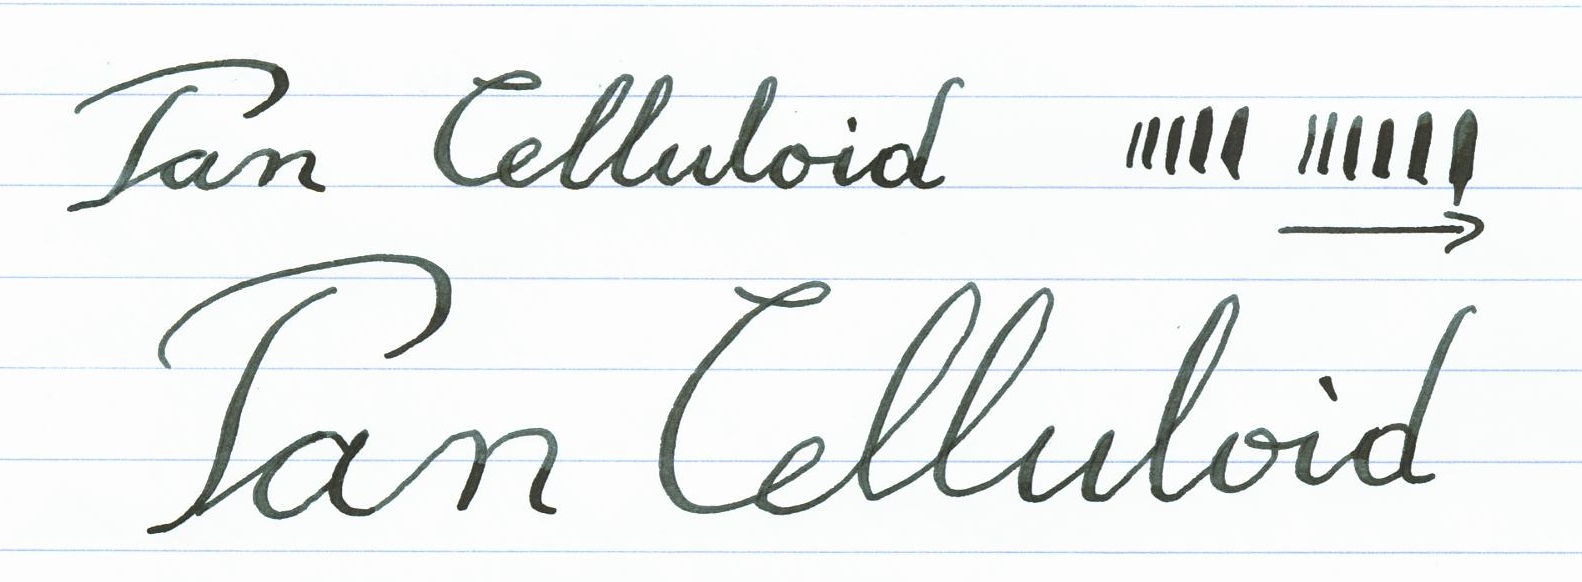 Tan Celluloid
Tan Celluloid